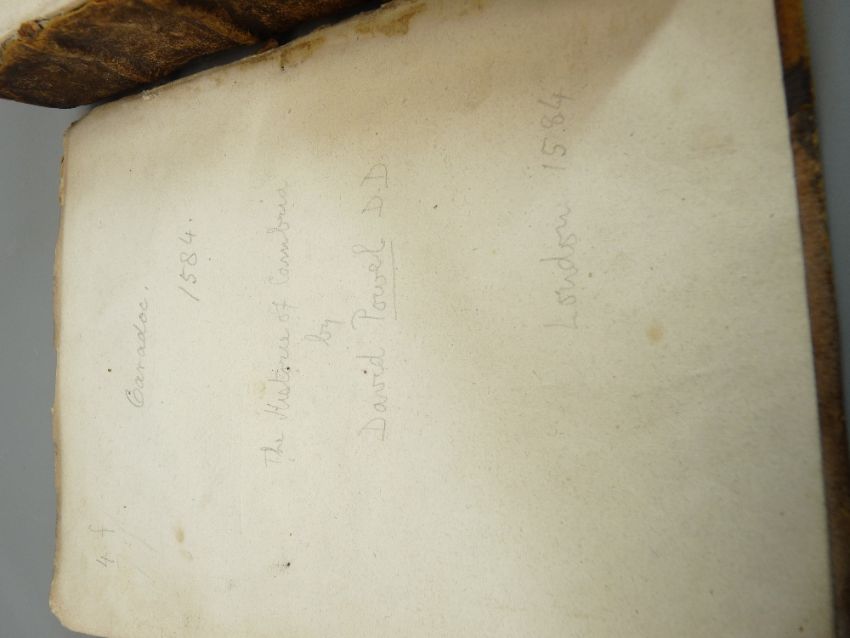 4 f
Caradoc.
1584.
The Historie of Cambria
by
David Powel D.D.
London 1584